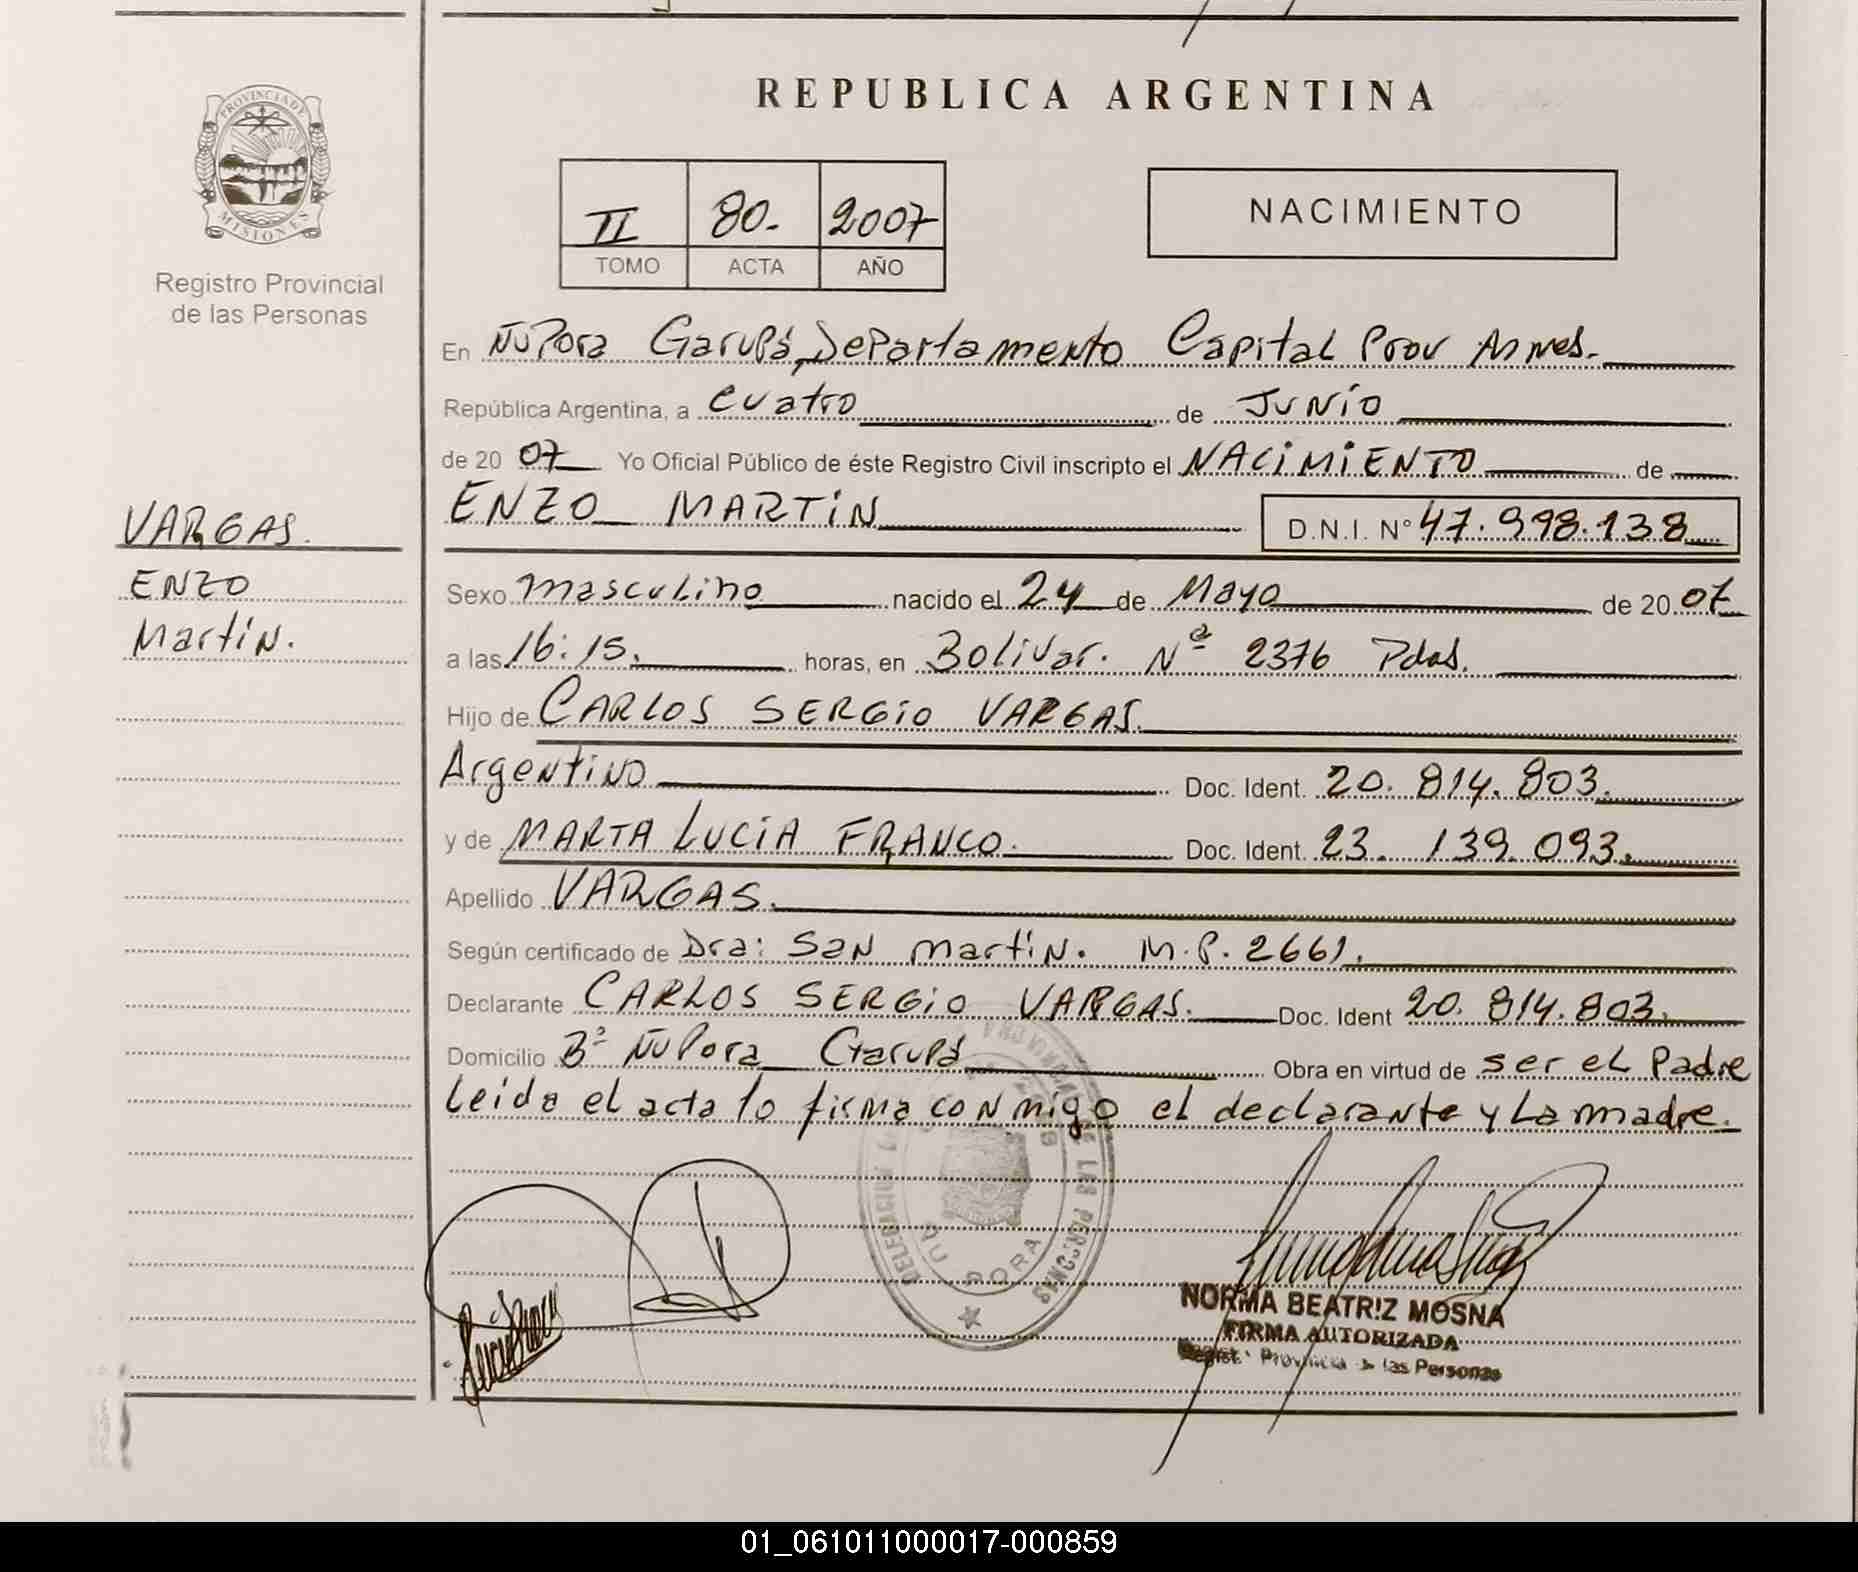 PROVINCIA DE
MISIONES
Registro Provincial
de las Personas
REPUBLICA ARGENTINA
II 80.- 2007
TOMO ACTA AÑO
NACIMIENTO
En ÑuPora Garupá, Departamento Capital Prov Mnes.
República Argentina, a cuatro de Junio
de 20 07 Yo Oficial Público de éste Registro Civil inscripto el NACIMIENTO de
ENZO MARTIN D.N.I. N° 47.998.138
VARGAS.
ENZO
Martin.
Sexo masculino nacido el 24 de Mayo de 20 07
a las 16:15. horas, en Bolivar. Nº 2376 Pdas.
Hijo de CARLOS SERGIO VARGAS.
Argentino Doc. Ident. 20. 814. 803.
y de MARTA LUCIA FRANCO. Doc. Ident. 23. 139. 093.
Apellido VARGAS.
Según certificado de Dra: San martin. M.P. 2661.
Declarante CARLOS SERGIO VARGAS. Doc. Ident 20. 814. 803.
Domicilio Bº ÑuPora Garupá Obra en virtud de ser el Padre
Leida el acta lo firma conmigo el declarante y La madre.
DELEGACION PROVINCIAL DE LAS PERSONAS
ÑU PORA
NORMA BEATRIZ MOSNA
FIRMA AUTORIZADA
Regist. Provincial las Personas
01_061011000017-000859